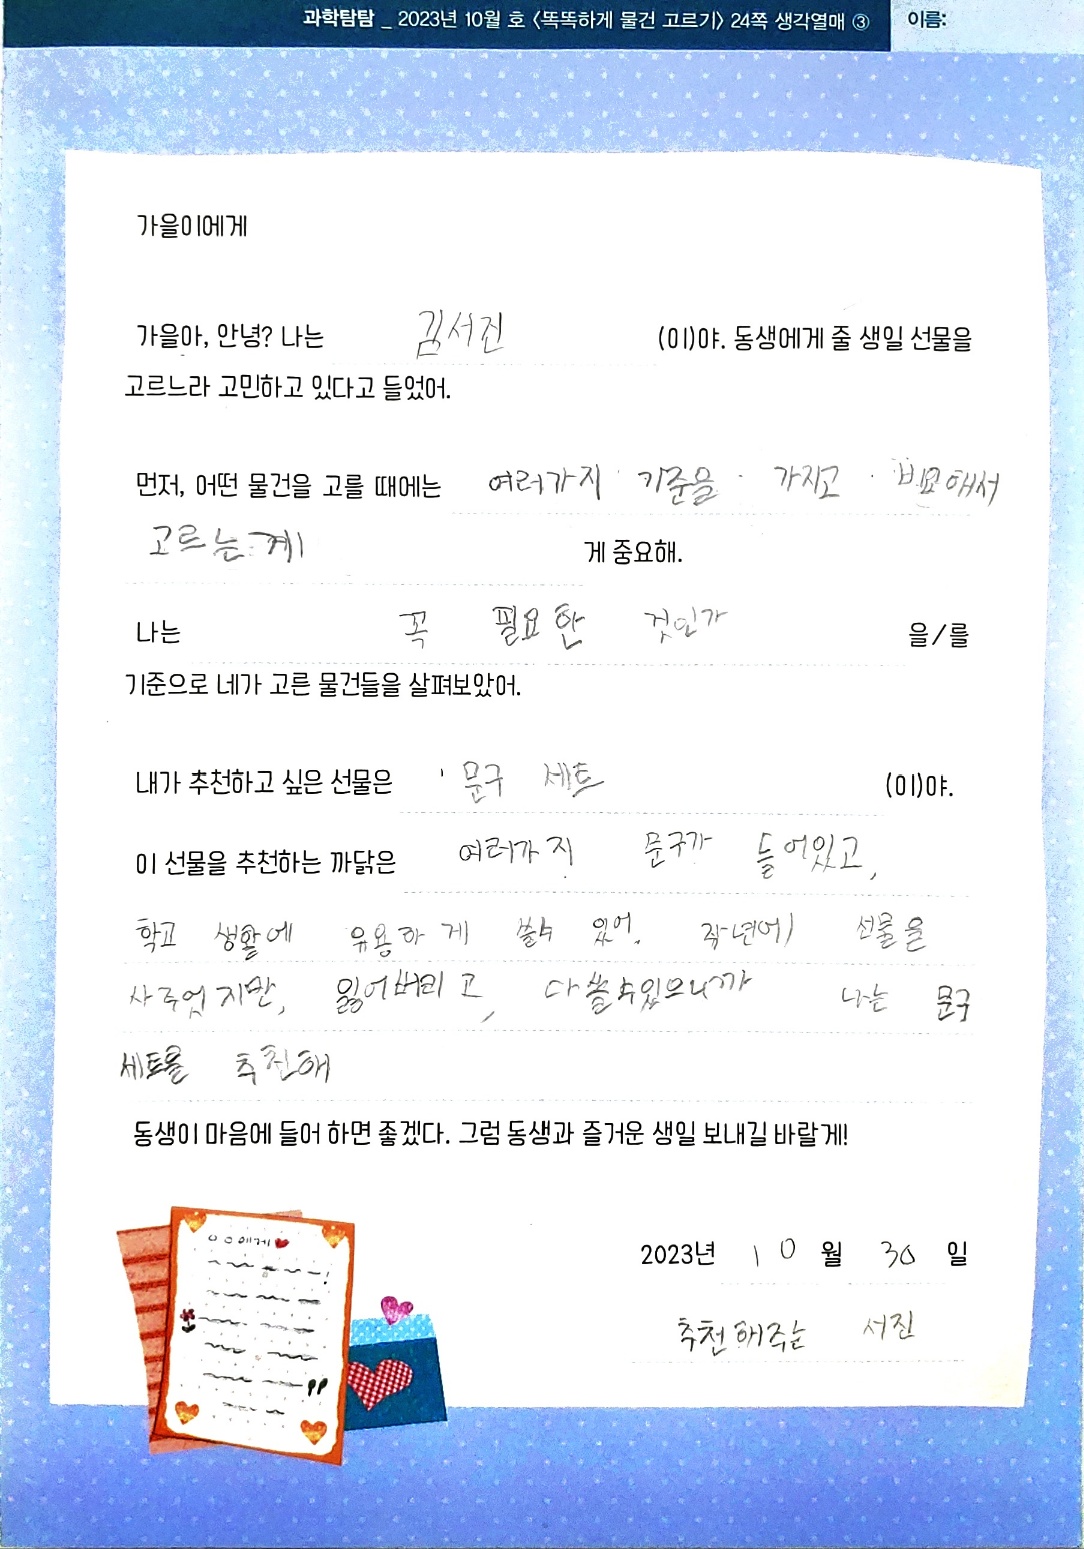 과학탐탐 _ 2023년 10월 호 <똑똑하게 물건 고르기> 24쪽 생각열매 ③ 이름:
가을이에게
가을아, 안녕? 나는 김서진 (이)야. 동생에게 줄 생일 선물을
고르느라 고민하고 있다고 들었어.
먼저, 어떤 물건을 고를 때에는 여러가지 기준을 가지고 비교해서
고르는게 게 중요해.
나는 꼭 필요한 것인가 을/를
기준으로 네가 고른 물건들을 살펴보았어.
내가 추천하고 싶은 선물은 문구 세트 (이)야.
이 선물을 추천하는 까닭은 여러가지 문구가 들어있고,
학교 생활에 유용하게 쓸수 있어. 작년에 선물을
사주었지만, 잃어버리고, 다쓸수있으니까 나는 문구
세트를 추천해
동생이 마음에 들어 하면 좋겠다. 그럼 동생과 즐거운 생일 보내길 바랄게!
ㅇㅇ에게
2023년 10월 30일
추천해주는 서진